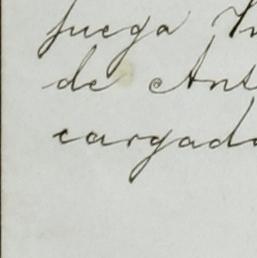 fuega
de Ant
cargad